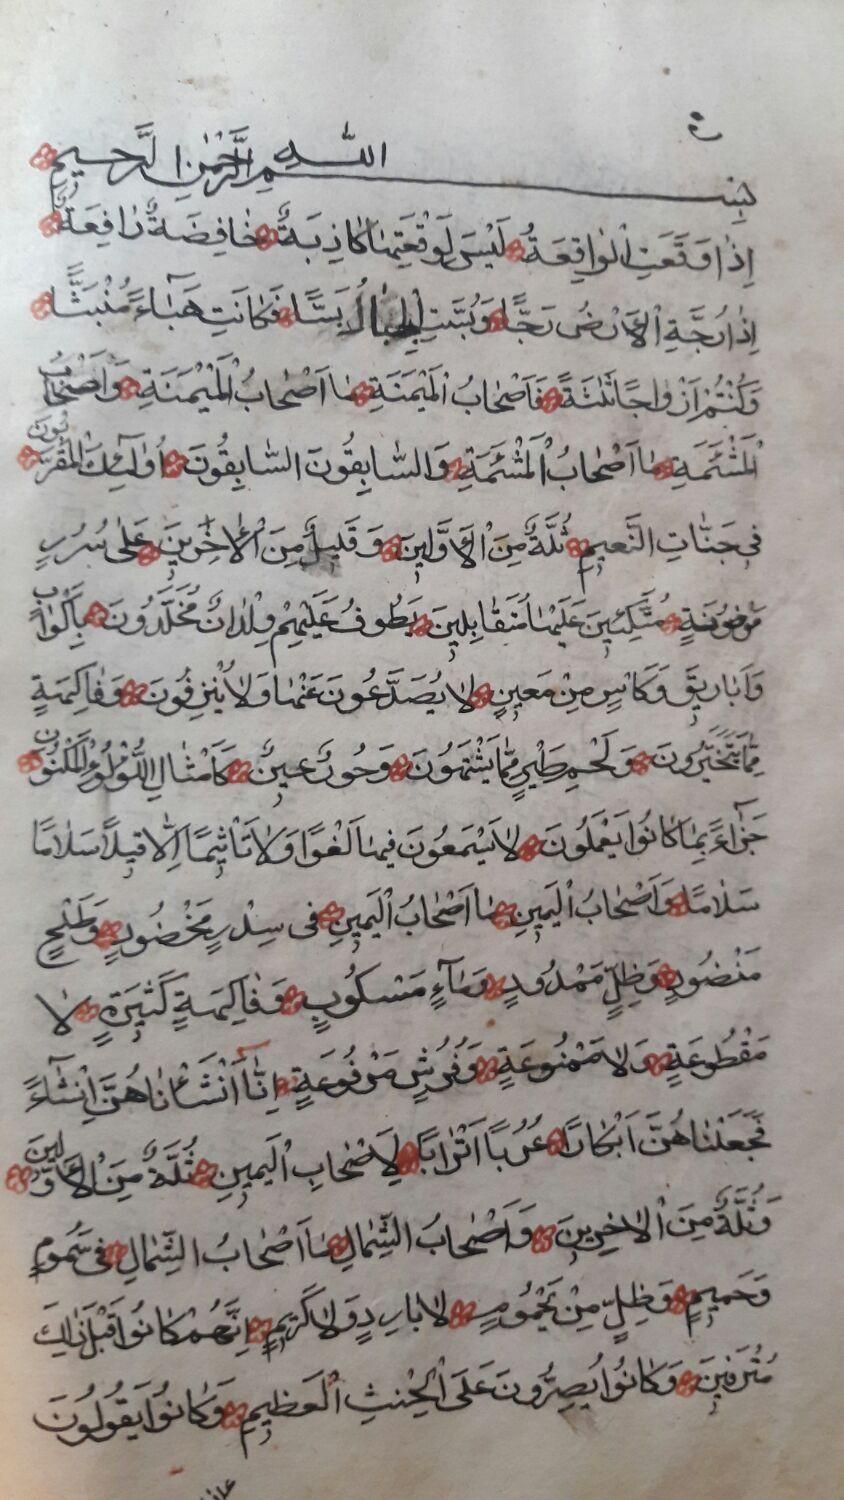 بِسْمِ اللّٰهِ الرَّحْمٰنِ الرَّحِيمِ
اِذَا وَقَعَتِ الْوَاقِعَةُ لَيْسَ لِوَقْعَتِهَا كَاذِبَةٌ خَافِضَةٌ رَافِعَةٌ
اِذَا رُجَّتِ الْاَرْضُ رَجًّا وَبُسَّتِ الْجِبَالُ بَسًّا فَكَانَتْ هَبَآءً مُنْبَثًّا
وَكُنْتُمْ اَزْوَاجًا ثَلٰثَةً فَاَصْحَابُ الْمَيْمَنَةِ مَا اَصْحَابُ الْمَيْمَنَةِ وَاَصْحَابُ
الْمَشْئَمَةِ مَا اَصْحَابُ الْمَشْئَمَةِ وَالسَّابِقُونَ السَّابِقُونَ اُولٰٓئِكَ الْمُقَرَّبُونَ
فِى جَنَّاتِ النَّعِيمِ ثُلَّةٌ مِنَ الْاَوَّلِينَ وَقَلِيلٌ مِنَ الْاٰخِرِينَ عَلٰى سُرُرٍ
مَوْضُونَةٍ مُتَّكِئِينَ عَلَيْهَا مُتَقَابِلِينَ يَطُوفُ عَلَيْهِمْ وِلْدَانٌ مُخَلَّدُونَ بِاَكْوَابٍ
وَاَبَارِيقَ وَكَاْسٍ مِنْ مَعِينٍ لَا يُصَدَّعُونَ عَنْهَا وَلَا يُنْزِفُونَ وَفَاكِهَةٍ
مِمَّا يَتَخَيَّرُونَ وَلَحْمِ طَيْرٍ مِمَّا يَشْتَهُونَ وَحُورٌ عِينٌ كَاَمْثَالِ اللُّؤْلُؤِ الْمَكْنُونِ
جَزَآءً بِمَا كَانُوا يَعْمَلُونَ لَا يَسْمَعُونَ فِيهَا لَغْوًا وَلَا تَاْثِيمًا اِلَّا قِيلًا سَلَامًا
سَلَامًا وَاَصْحَابُ الْيَمِينِ مَا اَصْحَابُ الْيَمِينِ فِى سِدْرٍ مَخْضُودٍ وَطَلْحٍ
مَنْضُودٍ وَظِلٍّ مَمْدُودٍ وَمَآءٍ مَسْكُوبٍ وَفَاكِهَةٍ كَثِيرَةٍ لَا
مَقْطُوعَةٍ وَلَا مَمْنُوعَةٍ وَفُرُشٍ مَرْفُوعَةٍ اِنَّآ اَنْشَاْنَاهُنَّ اِنْشَآءً
فَجَعَلْنَاهُنَّ اَبْكَارًا عُرُبًا اَتْرَابًا لِاَصْحَابِ الْيَمِينِ ثُلَّةٌ مِنَ الْاَوَّلِينَ
وَثُلَّةٌ مِنَ الْاٰخِرِينَ وَاَصْحَابُ الشِّمَالِ مَا اَصْحَابُ الشِّمَالِ فِى سَمُومٍ
وَحَمِيمٍ وَظِلٍّ مِنْ يَحْمُومٍ لَا بَارِدٍ وَلَا كَرِيمٍ اِنَّهُمْ كَانُوا قَبْلَ ذٰلِكَ
مُتْرَفِينَ وَكَانُوا يُصِرُّونَ عَلَى الْحِنْثِ الْعَظِيمِ وَكَانُوا يَقُولُونَ